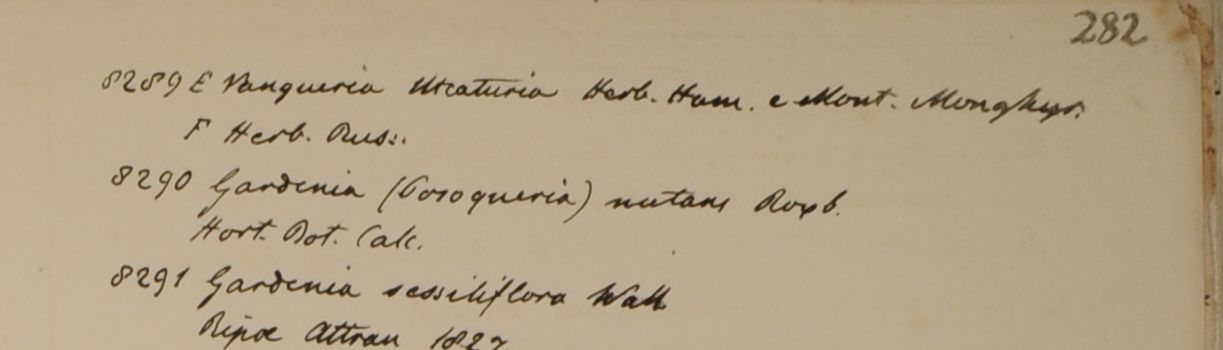 282
8289 E Vangueria Mcaturia Herb. Ham. e Mont. Monghyr.
F Herb. Russ.
8290 Gardenia (Posoqueria) nutans Roxb.
Hort. Bot. Calc.
8291 Gardenia sessiliflora Wall
Ripae Attran 1827